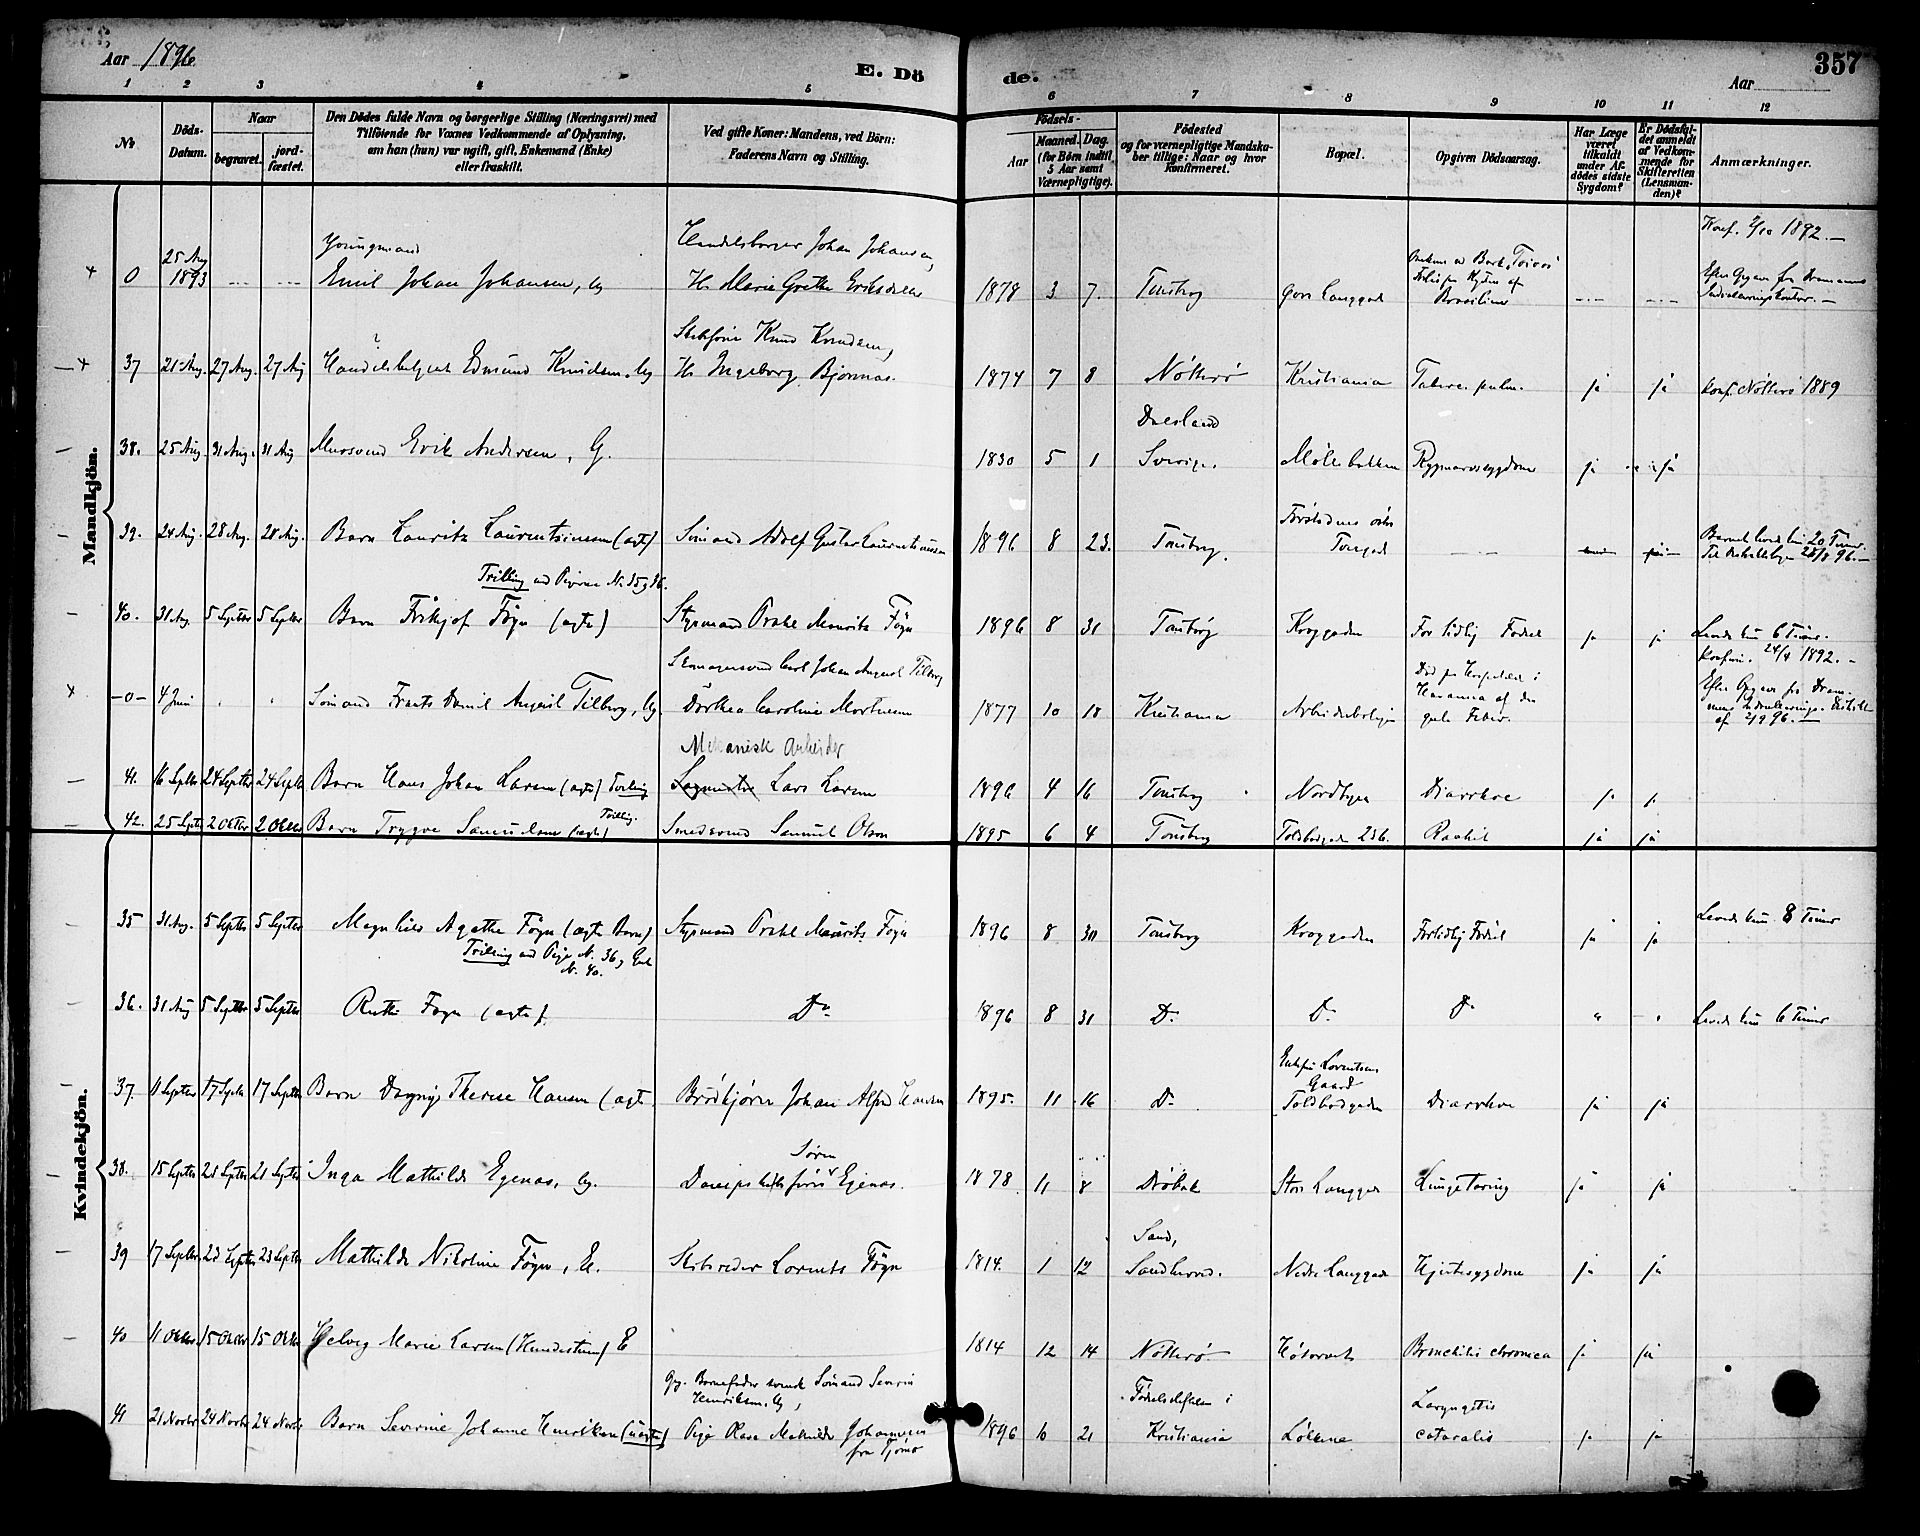 Aar 1896
E. Döde.
Aar
357
1 2 3 4 5 6 7 8 9 10 11 12
No
Döds-Datum.
Naar
begravet.
jord-fæstet.
Den Dödes fulde Navn og borgerlige Stilling (Næringsvei) med
Tilföiende for Voxnes Vedkommende af Oplysning,
om han (hun) var ugift, gift, Enkemand (Enke)
eller fraskilt.
Ved gifte Koner: Mandens, ved Börn:
Faderens Navn og Stilling.
Födsels-
Aar
Maaned. Dag.
(for Börn indtil
5 Aar samt
Værnepligtige).
Födested
og for værnepligtige Mandska-
ber tillige: Naar og hvor
konfirmeret.
Bopæl.
Opgiven Dödsaarsag.
Har Læge
været
tilkaldt
under Af-
dödes sidste
Sygdom?
Er Dödsfal-
det anmeldt
af Vedkom-
mende for
Skifteretten
(Lensman-
den)?
Anmærkninger.
Mandkjön.
0 25 Aug 1893 Youngmand
Emil Johan Johansen, Ug
Handelsborger Johan Johansen,
H. Marie Grethe
1878 3 7. Tönsberg Langgade
Konf. 2/10 1892.
37 21 Aug. 27 Aug. 27 Aug Edmund Knudsen, Ug
Knud Knudsen,
H. Ingeborg Bjönnæs.
1874 7 8 Nötterö Kristiania Tuberc. pulm. ja ja Konf. Nötterö 1889
38. 25 Aug. 31 Aug. 31 Aug Mursvend Erik Andersen, G.
1830 5 1 Dalsland
Sverige. Möllebakken Rygmarvssygdom ja ja
39. 24 Aug. 28 Aug. 28 Aug. Barn Lauritz Laurentsinsen (ægte)
Sömand Adolf Gustav Laurentsinsen
1896 8 23. Tönsberg.
Barnet levede kun 20 Timer.
Trilling med Pigerne N. 35 og 36.
40. 31 Aug. 5 Septbr 5 Septbr Barn Fritjof Föyn (ægte)
Styrmand Mauritz Föyn
1896 8 31 Tönsberg Kroggaden For tidlig Födsel ja ja Levede kun 6 Timer.
Konfirm. 24/4 1892.
-0- 4 Juni Sömand Frants Daniel August Tilberg, Ug.
Skomagersvend Carl Johan August Tilberg
Dorthea Caroline Mortensen
1877 10 18 Kristiania
Död paa Hospitalet i
Havanna af den
gule Feber.
41. 16 Septbr 24 Septbr 24 Septbr Barn Hans Johan Larsen (ægte) Tvilling
Mekanisk Arbeider
Lars Larsen
1896 4 16 Tönsberg Nordbyen Diarrhoe ja ja
42. 25 Septbr 2 Oktbr 2 Oktbr Barn Trygve Samuelsen (ægte) Tvilling.
Smedsvend Samuel Olsen
1895 6 4 Tönsberg Toldbodgaden 236. Rachit ja ja
Kvindekjön.
35 31 Aug. 5 Septbr 5 Septbr Magnhild Agathe Föyn (ægte Barn)
Trilling med Pige N. 36 og Gut
N. 40.
Styrmand Mauritz Föyn
1896 8 30 Tönsberg Kroggaden Fortidlig Födsel ja ja Levede kun 8 Timer
36. 31 Aug 5 Septbr 5 Septbr Ruth Föyn (ægte)
Do
1896 8 31 Do Do Do " " Levede kun 6 Timer
37. 11 Septbr 17 Septbr 17 Septbr Barn Dagny Therese Hansen (ægte
Brödkjörer Johan Alfred Hansen
1895. 11 16 Do Enkefru Lorentsens
Gaard
Toldbodgaden Diarrhoe ja ja
38. 15 Septbr 21 Septbr 21 Septbr Inga Mathilde Egenæs, Ug.
Dampskibsförer Sören Egenæs.
1878. 11 8 Dröbak Store Langgade Lungetæring ja ja
39 17 Septbr. 23 Septbr 23 Septbr Mathilde Nikoline Föyn, E.
Skibsreder Lorents Föyn
1814. 1 12 Sand,
Sandherred. Nedre Langgade Hjertesygdom ja ja
40 11 Oktbr 15 Oktbr 15 Oktbr Helvig Marie Larsen (Hundestuen) E
1814 12 14 Nötterö Bronchitis chronica ja ja
41 21 Novbr 24 Novbr 24 Novbr Barn Severine Johanne Henriksen (uægte)
Opg. Barnefader svensk Sömand Severin
Henriksen, Ug,
Pige Mathilde Johannesen
fra Tjömö
1896 10 21 Födselsstiftelsen i
Kristiania Laryngitis
cataralis ja ja